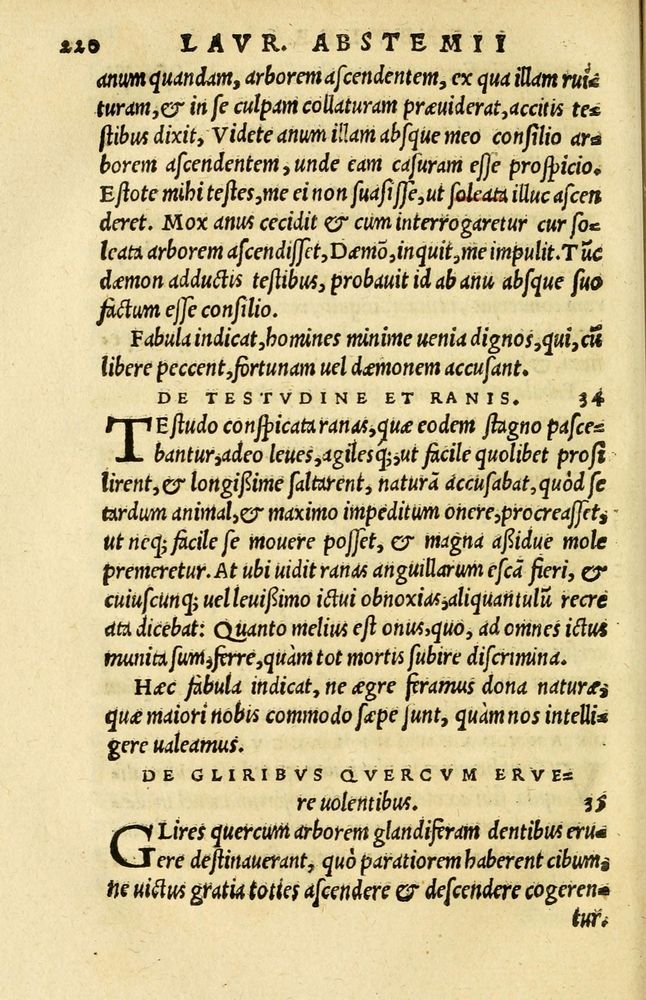 220 LAVR. ABSTEMII
anum quandam, arborem ascendentem, ex qua illam rui=
turam, & in se culpam collaturam præuiderat, accitis te=
stibus dixit, Videte anum illam absque meo consilio ar=
borem ascendentem, unde eam casuram esse prospicio.
Estote mihi testes, me ei non suasisse, ut soleata illuc ascen
deret. Mox anus cecidit & cum interrogaretur cur so=
leata arborem ascendisset, Dæmõ, inquit, me impulit. Tũc
dæmon adductis testibus, probauit id ab anu absque suo
factum esse consilio.
Fabula indicat, homines minime uenia dignos, qui, cũ
libere peccent, fortunam uel dæmonem accusant.
DE TESTVDINE ET RANIS. 34
TEstudo conspicata ranas, quæ eodem stagno pasce=
bantur, adeo leues, agilesq;, ut facile quolibet prosi
lirent, & longißime saltarent, naturã accusabat, quòd se
tardum animal, & maximo impeditum onere, procreasset,
ut neq; facile se mouere posset, & magna aßidue mole
premeretur. At ubi uidit ranas anguillarum escã fieri, &
cuiuscunq; uel leuißimo ictui obnoxias, aliquantulũ recre
ata dicebat: Quanto melius est onus, quo, ad omnes ictus
munita sum, ferre, quàm tot mortis subire discrimina.
Hæc fabula indicat, ne ægre feramus dona naturæ,
quæ maiori nobis commodo sæpe sunt, quàm nos intelli=
gere ualeamus.
DE GLIRIBVS QVERCVM ERVE=
re uolentibus. 35
GLires quercum arborem glandiferam dentibus eru=
ere destinauerant, quò paratiorem haberent cibum,
ne uictus gratia toties ascendere & descendere cogeren=
tur.